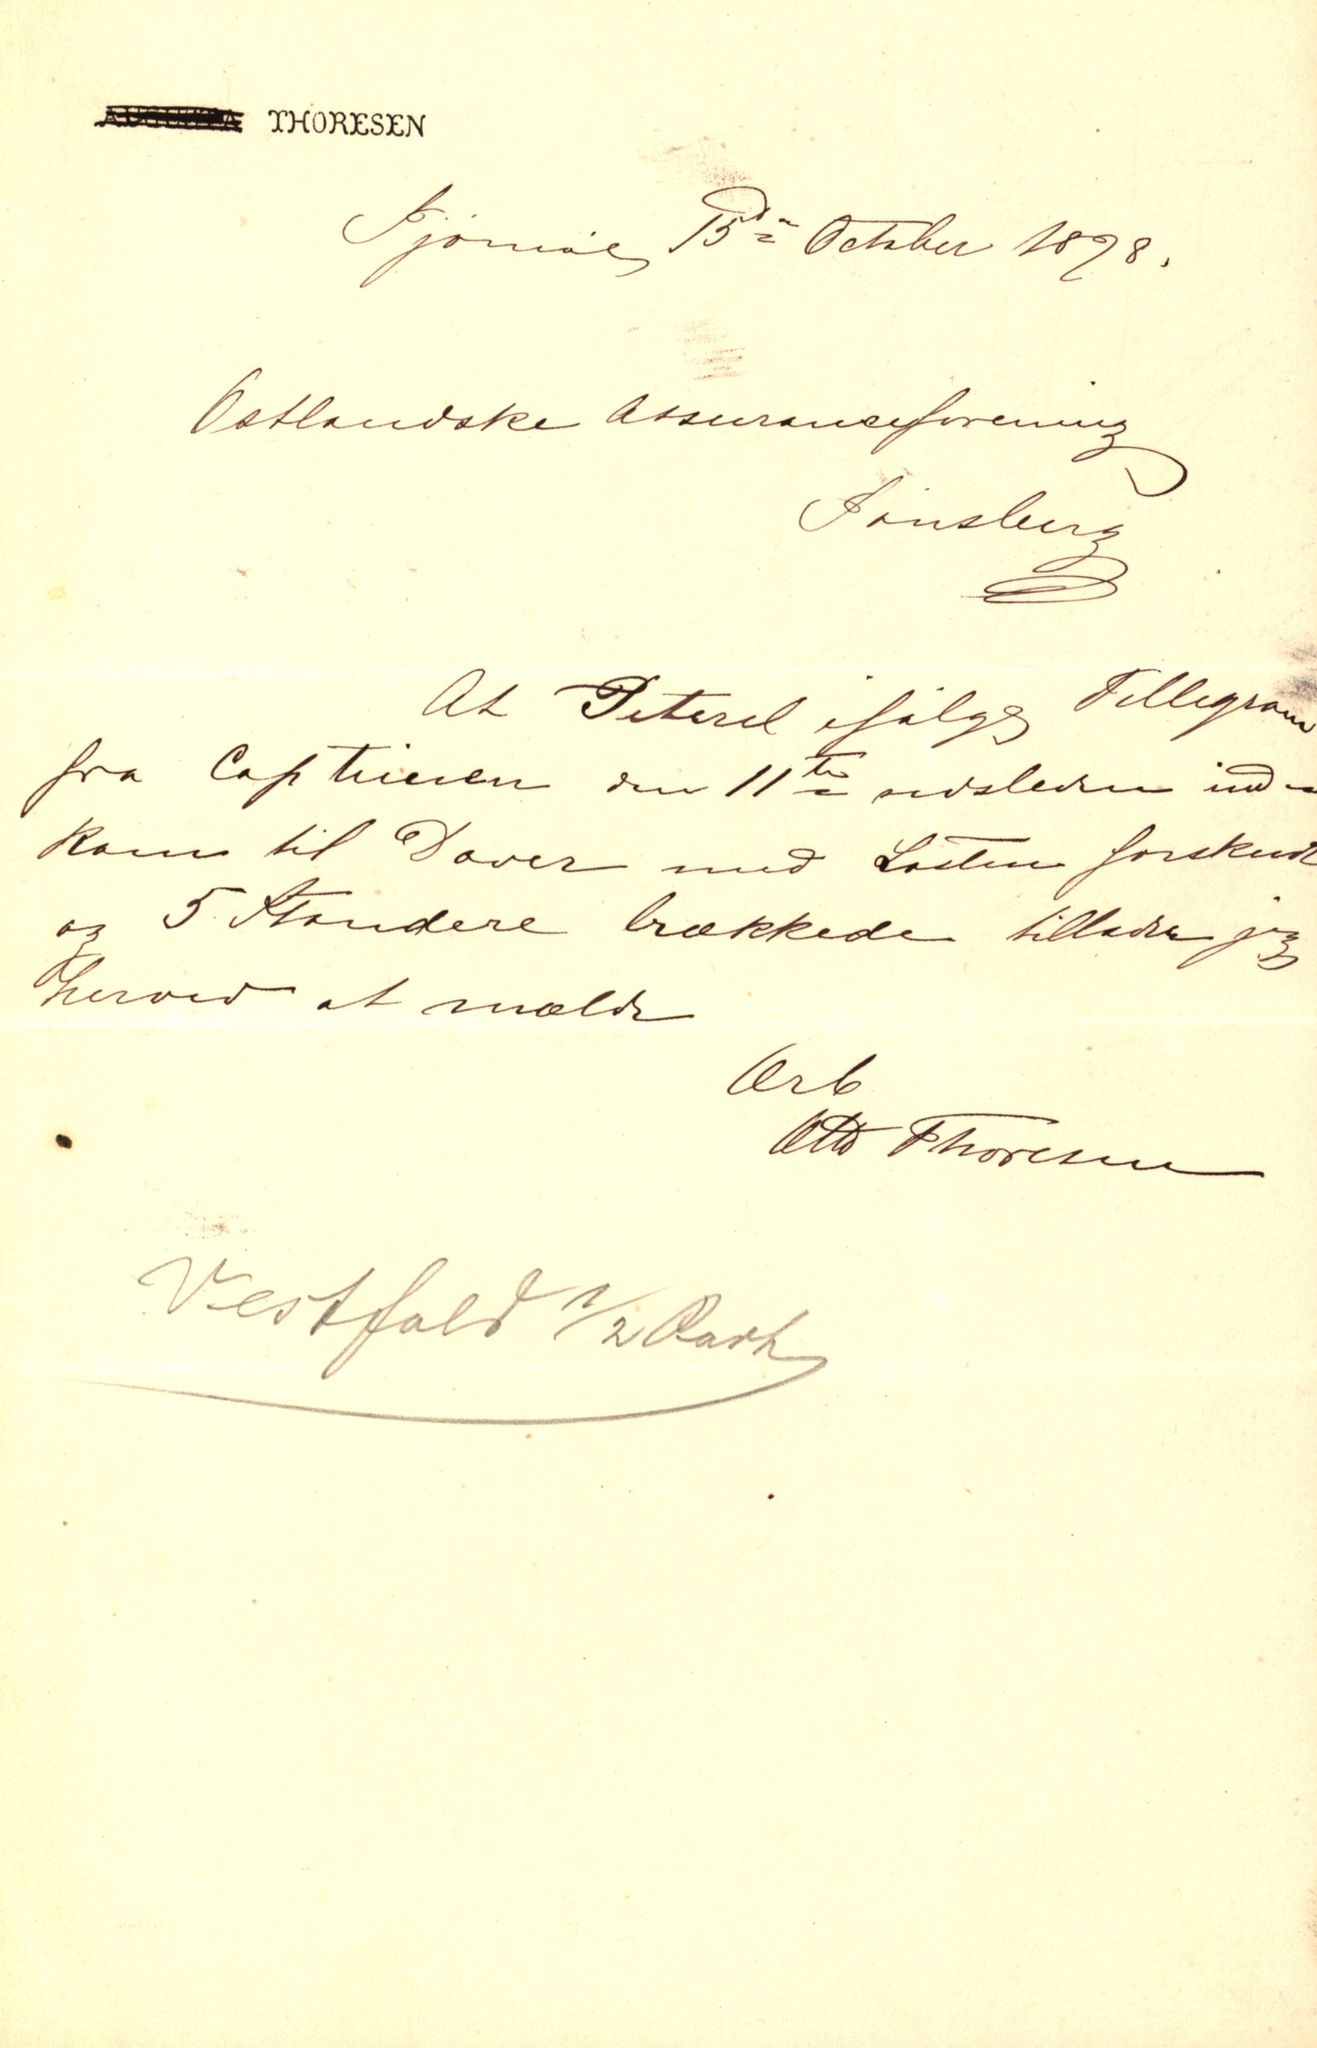 THORESEN
Tjømø 15de October 1898.
Østlandske Assuranceforening
Tønsberg
At Peterel ifølge Tellegram
fra Captienen den 11te sidsleden ind-
kom til Dover med Lasten forskudt
og 5 Standere brækkede tillader jeg
herved at mælde
Ærb
Otto Thoresen
Vestfold 1/2